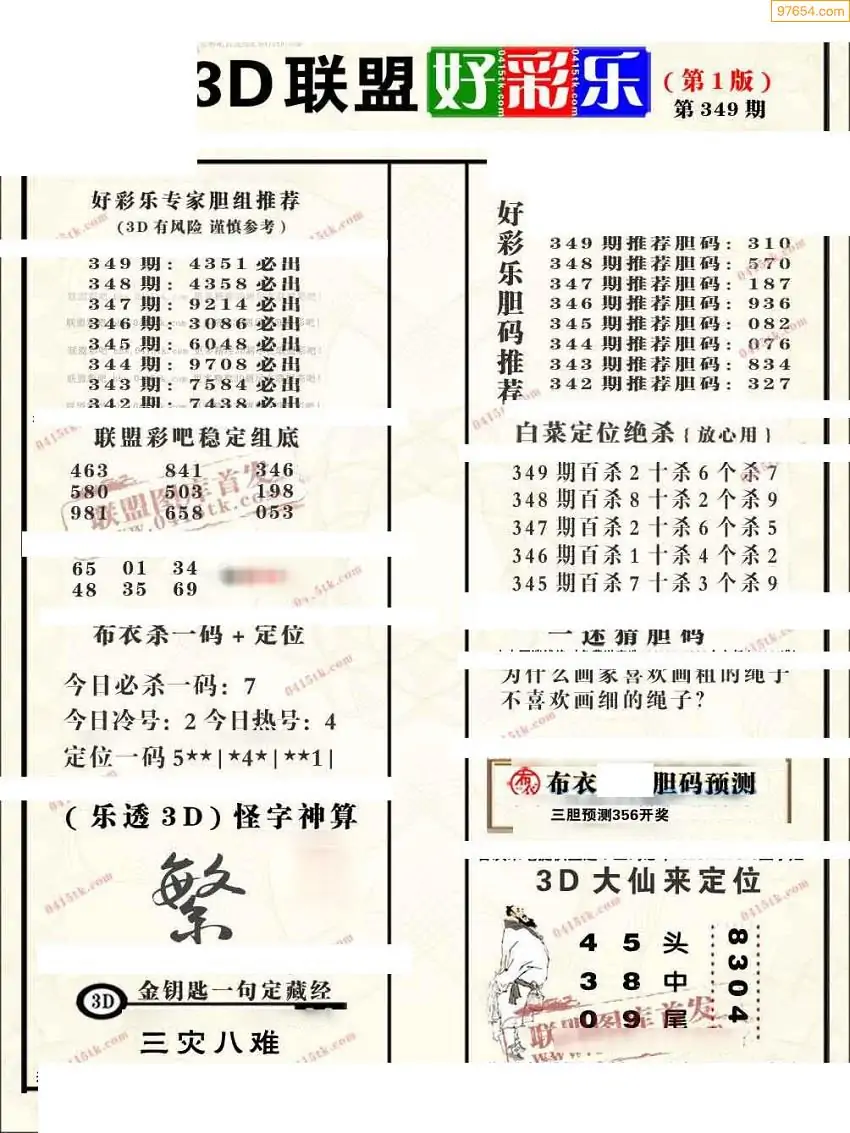 97654.com
3D联盟好彩乐(第1版)
第349期
好彩乐专家胆组推荐
(3D有风险 谨慎参考)
349期:4351必出
348期:4358必出
347期:9214必出
346期:3086必出
345期:6048必出
344期:9708必出
343期:7584必出
342期:7438必出
联盟彩吧稳定组底
463 841 346
580 503 198
981 658 053
65 01 34
48 35 69
布衣杀一码+定位
今日必杀一码:7
今日冷号:2 今日热号:4
定位一码 5**|*4*|**1|
(乐透3D)怪字神算
繁
3D 金钥匙一句定藏经
三灾八难
好彩乐胆码推荐
349期推荐胆码:310
348期推荐胆码:570
347期推荐胆码:187
346期推荐胆码:936
345期推荐胆码:082
344期推荐胆码:076
343期推荐胆码:834
342期推荐胆码:327
白菜定位绝杀{放心用}
349期百杀2十杀6个杀7
348期百杀8十杀2个杀9
347期百杀2十杀6个杀5
346期百杀1十杀4个杀2
345期百杀7十杀3个杀9
一迷猜胆码
为什么画家喜欢画粗的绳子
不喜欢画细的绳子?
布衣 胆码预测
三胆预测356开奖
3D大仙来定位
4 5 头
3 8 中
0 9 尾
8304
联盟图库首发
www.0415tk.com
0415tk.com